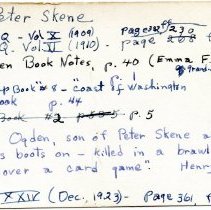 Peter Skene
Q - Vol X (1909) page 230 ff
Q - Vol. (1910). - page
en Book Notes, p. 40 (Emma F.
grand-
p Book #8 - "Coast of Washington
ook p. 44
Book #2 p. 5
Ogden, son of Peter Skene a
s boots on - killed in a brawl
over a card game". Henr
XXIV (Dec., 1923) - page 361, f